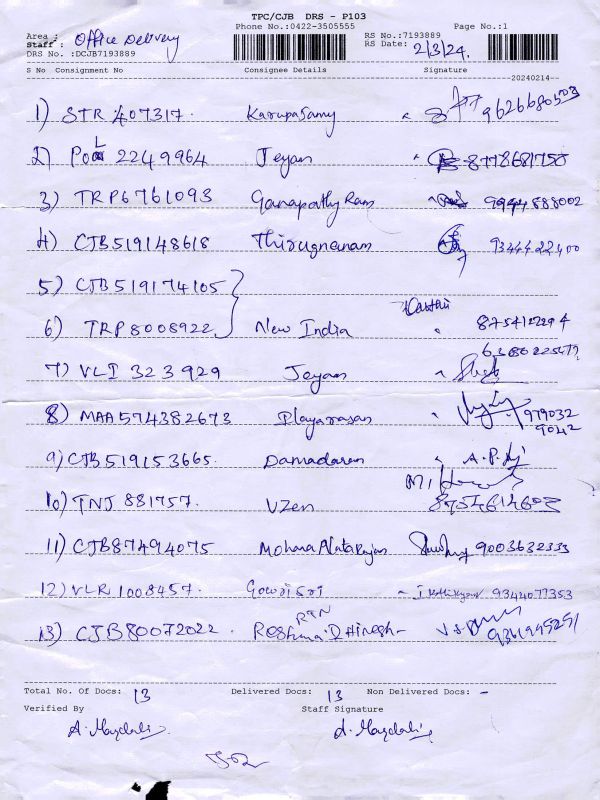 TPC/CJB DRS - P103
Phone No.:0422-3505555 Page No.:1
Area : RS No.:7193889
Staff : Office Delivery RS Date: 2/3/24.
DRS No. :DCJB7193889
S No Consignment No Consignee Details Signature
20240214
1) STR 407317. Karupasamy 9626680503
2) POL 2249964 Jeyan 8778681758
3) TRP6761093 Ganapathy Ram 9944888002
4) CJB519148618 Thirugnanam 9344422400
5) CJB519174105
6) TRP8008922 New India
7) VLI 323929 Jeyam
8) MAA574382673 Ilayarasan 979032
9042
9) CJB519153665. Damadaran
10) TNJ 881757. VZen
11) CJB87494075 Mohana Natarajan 9003632333
12) VLR1008457. 9344077353
13) CJB80072022. Reshma.D Hinesh RTN
Total No. Of Docs: 13 Delivered Docs: 13 Non Delivered Docs: -
Verified By Staff Signature